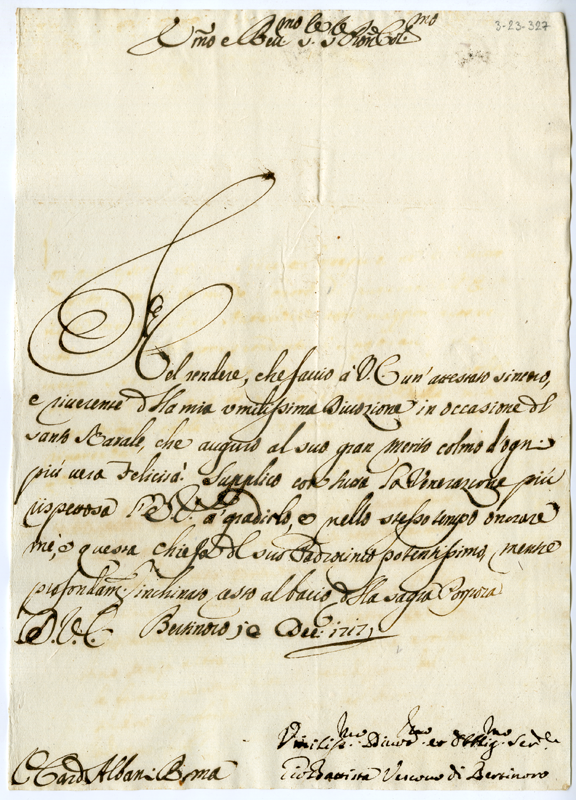 3-23-327
Em̃o e Reu.mo Sig.re Sig.re Pron Col.mo
Nel rendere, che faccio à V. E un'attestato sincero,
e riuerente della mia vmilissima Diuozione in occasione del
santo Natale, che auguro al suo gran merito colmo d'ogni
più vera Felicità. Supplico con tutta la Venerazione più
rispettosa l' E. V. à gradirlo, e nello stesso tempo onorare
mè, e questa chiesa del suo Padrocinio potentissimo, mentre
profondam.te inchinato resto al bacio della sagra Porpora
D. V. E. Bertinoro Dec.e 1717
Vmiliss.mo Diuot.mo et Obblig.mo Ser.re
C. Card Albani Roma
Gio Battista Vescouo di Bertinoro